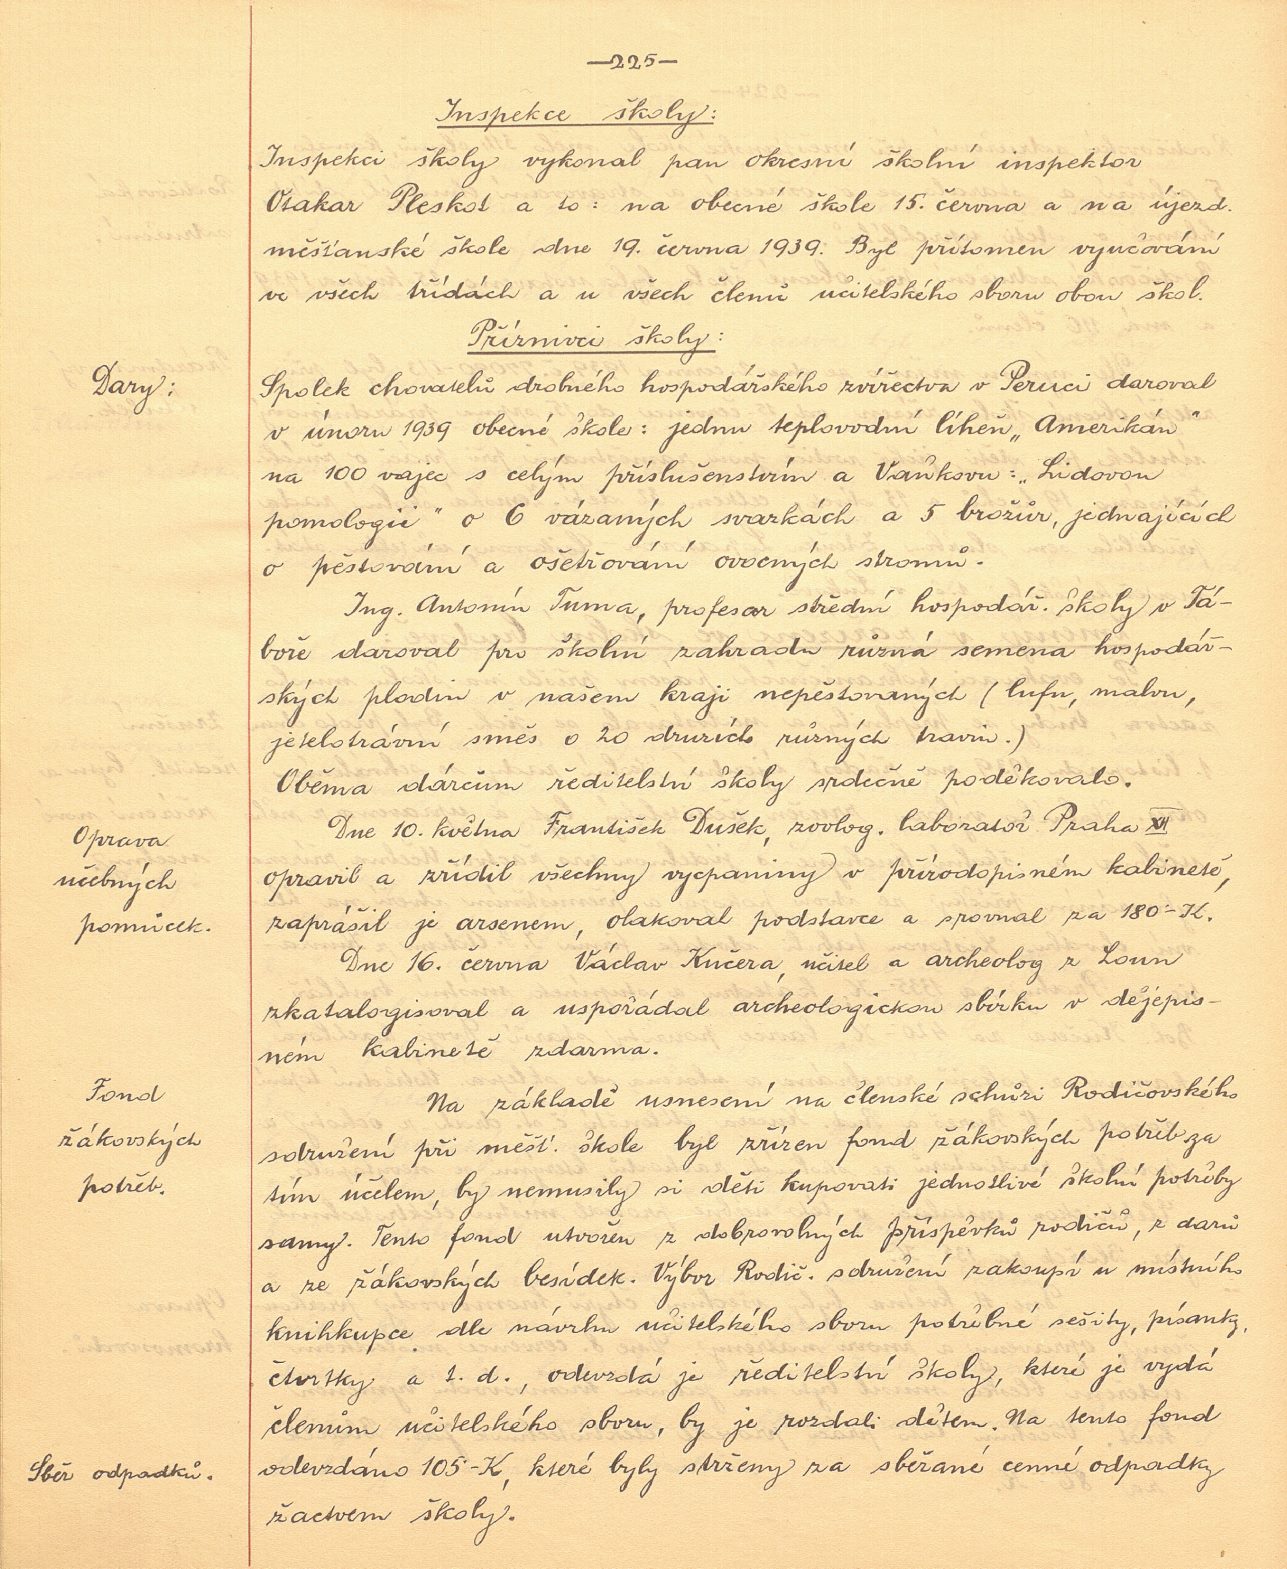 —225—
Inspekce školy:
Inspekci školy vykonal pan okresní školní inspektor
Otakar Pleskot a to: na obecné škole 15. června a na újezd.
měšťanské škole dne 19. června 1939. Byl přítomen vyučování
ve všech třídách a u všech členů učitelského sboru obou škol.
Příznivci školy:
Dary:
Spolek chovatelů drobného hospodářského zvířectva v Peruci daroval
v únoru 1939 obecné škole: jednu teplovodní líheň „Amerikán"
na 100 vajec s celým příslušenstvím a Vaňkovu: „Lidovou
pomologii" o 6 vázaných svazkách a 5 brožůr, jednajících
o pěstování a ošetřování ovocných stromů.
Ing. Antonín Tuma, profesor střední hospodář. školy v Tá-
boře daroval pro školní zahradu různá semena hospodář-
ských plodin v našem kraji nepěstovaných (lufu, malvu,
jetelotrávní směs o 20 druzích různých travin.)
Oběma dárcům ředitelství školy srdečně poděkovalo.
Oprava
učebných
pomůcek.
Dne 10. května František Dušek, zoolog. laboratoř Praha XII
opravil a zřídil všechny vycpaniny v přírodopisném kabinetě,
zaprášil je arsenem, olakoval podstavce a srovnal za 180·-K.
Dne 16. června Václav Kučera, učitel a archeolog z Loun
zkatalogisoval a uspořádal archeologickou sbírku v dějepis-
ném kabinetě zdarma.
Fond
žákovských
potřeb.
Na základě usnesení na členské schůzi Rodičovského
sdružení při měšť. škole byl zřízen fond žákovských potřeb za
tím účelem, by nemusily si děti kupovati jednotlivé školní potřeby
samy. Tento fond utvořen z dobrovolných příspěvků rodičů, z darů
a ze žákovských besídek. Výbor Rodič. sdružení zakoupí u místního
knihkupce dle návrhu učitelského sboru potřebné sešity, písanky,
čtvrtky a t. d., odevzdá je ředitelství školy, které je vydá
členům učitelského sboru, by je rozdali dětem. Na tento fond
Sběr odpadků.
odevzdáno 105-K, které byly strženy za sbírané cenné odpadky
žactvem školy.